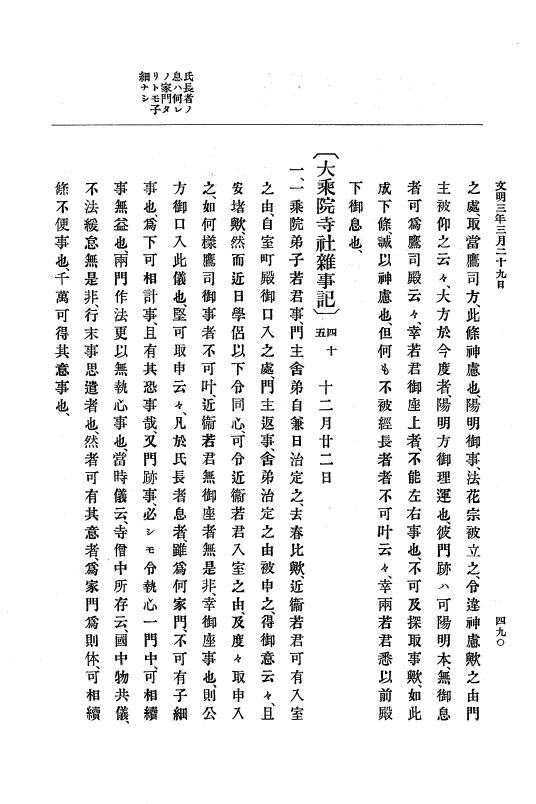 文明三年三月二十九日
四九〇
之處、取當鷹司方、此條神慮也、陽明御事、法花宗被立之、令違神慮歟之由門
主被仰之云々、大方於今度者、陽明方御理運也、彼門跡ハ可陽明本、無御息
者可爲鷹司殿云々、幸若君御座上者、不能左右事也、不可及探取事歟、如此
成下條誠以神慮也、但何も不被經長者者不可叶云々、幸兩若君悉以前殿
下御息也、
〔大乘院寺社雜事記〕
四十
五
十二月廿二日
一、一乘院弟子若君事、門主舍弟自兼日治定之、去春比歟、近衞若君可有入室
之由、自室町殿御口入之處、門主返事、舍弟治定之由被申之、得御意云々、且
安堵歟、然而近日學侶以下令同心、可令近衞若君入室之由、及度々取申入
之、如何樣鷹司御事者不可叶、近衞若君無御座者無是非、幸御座事也、則公
方御口入此儀也、堅可取申云々、凡於氏長者息者、雖爲何家門、不可有子細
事也、爲下可相計事、且有其恐事哉、又門跡事、必シモ令執心一門中、可相續
事無益也、兩門作法更以無執心事也、當時儀云寺僧中所存、云國中物共儀、
不法緩怠無是非、行末事思遣者也、然者可有其意者、爲家門爲則休、可相續
條不便事也、千萬可得其意事也、
氏長者ノ
息ハ何レ
ノ家門タ
リトモ子
細ナシ